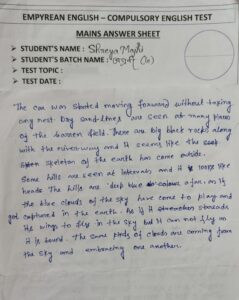 EMPYREAN ENGLISH – COMPULSORY ENGLISH TEST
MAINS ANSWER SHEET
➢ STUDENT'S NAME : Shreya Majhi
➢ STUDENT'S BATCH NAME : (in)
➢ TEST TOPIC :
➢ TEST DATE :
The car was started moving forward without taking
any rest. Dry sand lines are seen at many places
of the barren field. There are big black rocks along
with the river way and it seems like the
skeleton of the earth has come outside.
Some hills are seen at intervals and it looks like
heads. The hills are deep blue colour afar, as if
the blue clouds of the sky have come to play and
got captured in the earth. As if it spreads
its wings to fly in the sky but it can not fly as
it is bound. The same kinds of clouds are coming from
the sky and embracing one another.